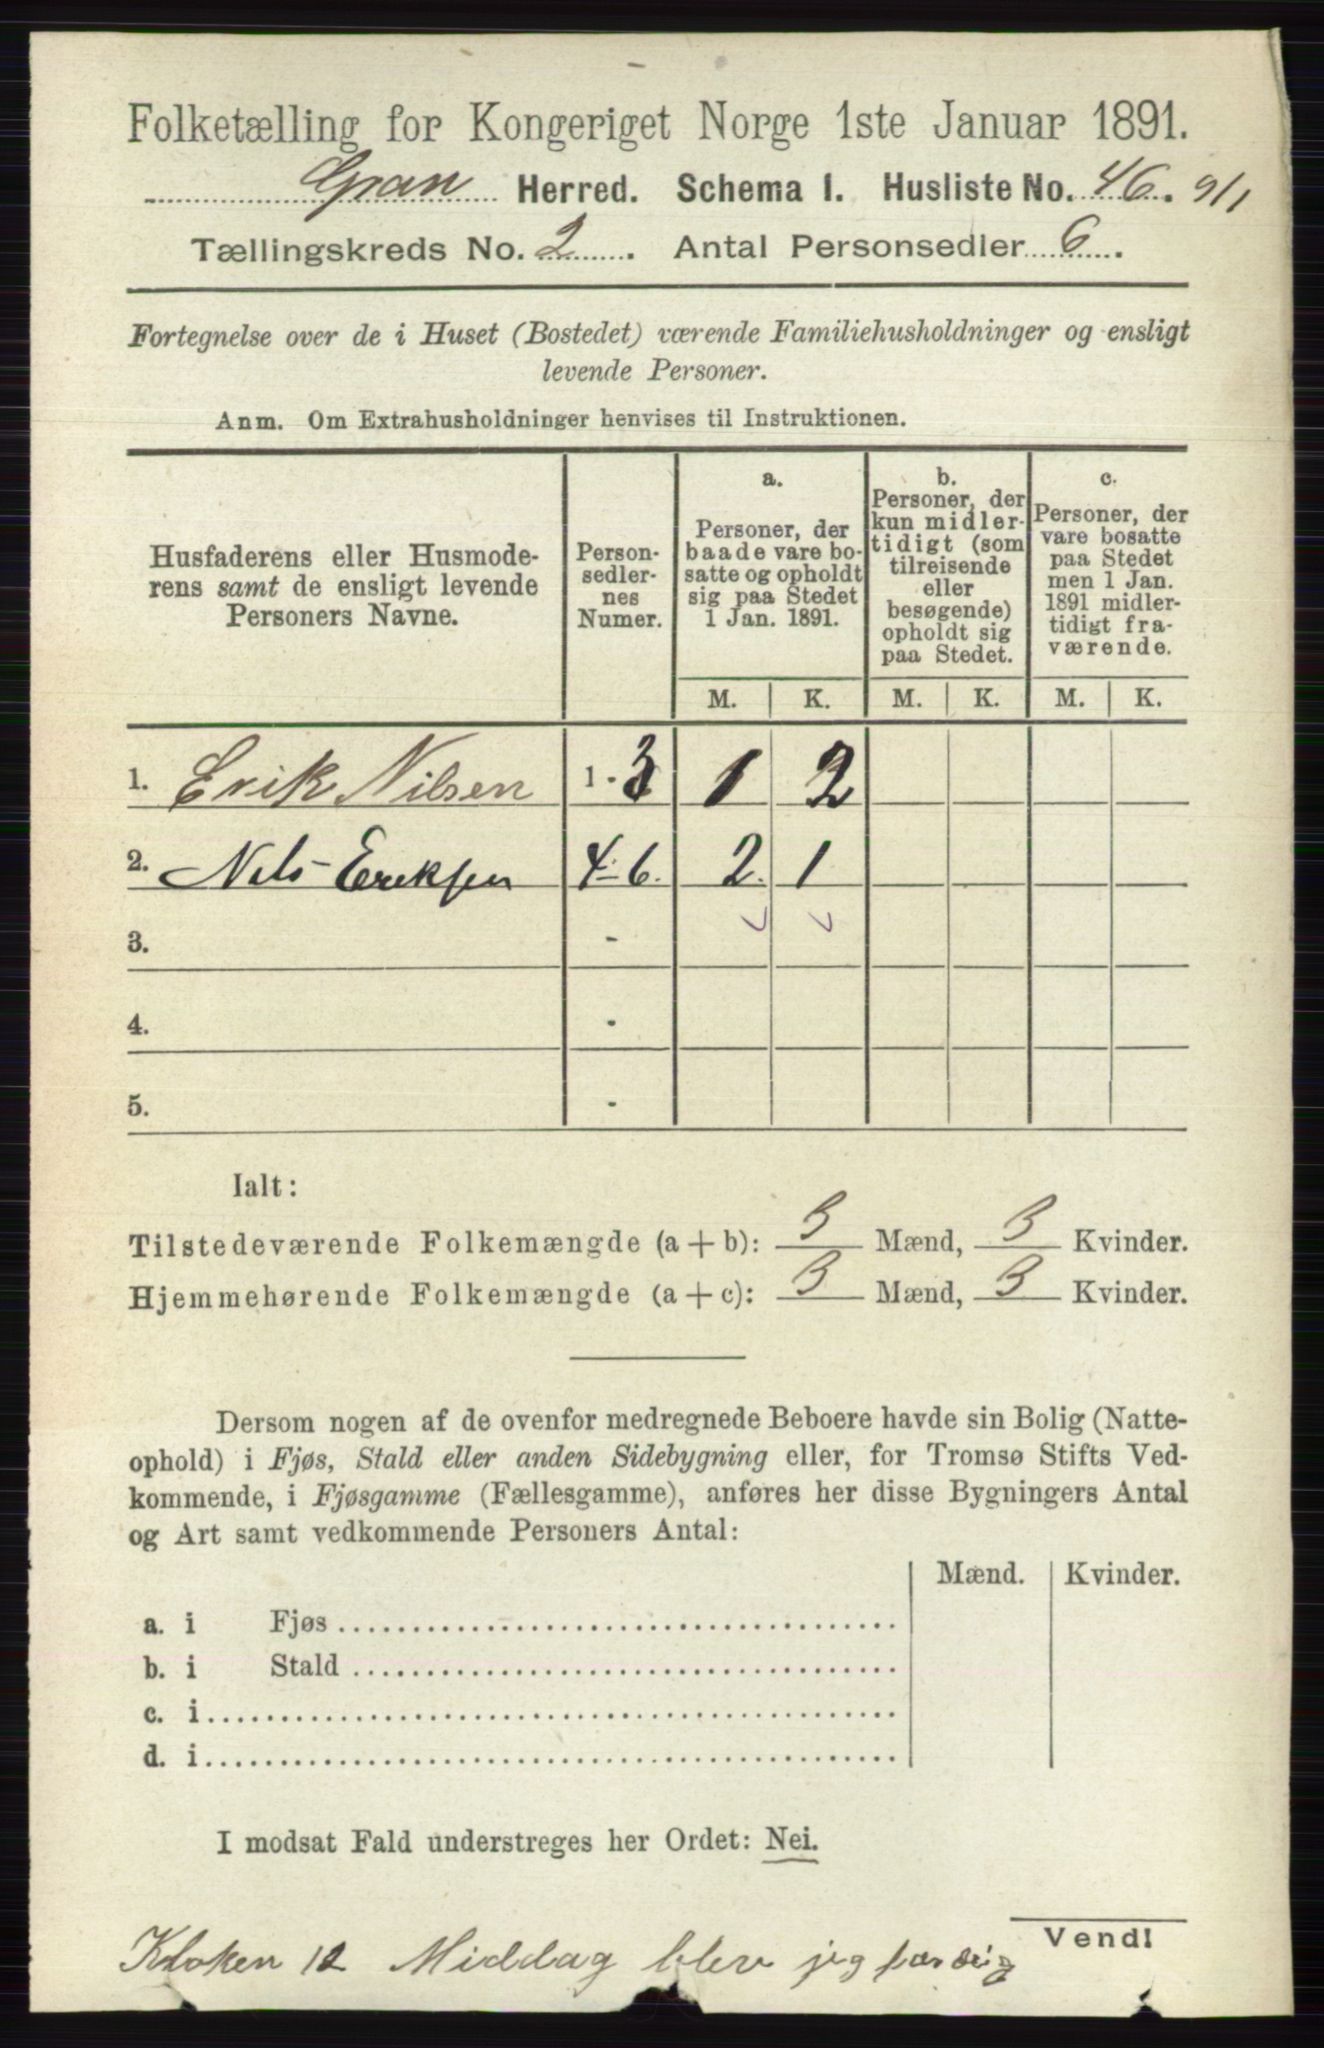 Folketælling for Kongeriget Norge 1ste Januar 1891.
Gran Herred. Schema 1. Husliste No. 46. 9/1
Tællingskreds No. 2. Antal Personsedler 6.
Fortegnelse over de i Huset (Bostedet) værende Familiehusholdninger og ensligt
levende Personer.
Anm. Om Extrahusholdninger henvises til Instruktionen.
Husfaderens eller Husmode-
rens samt de ensligt levende
Personers Navne.
Person-
sedler-
nes
Numer.
a.
Personer, der
baade vare bo-
satte og opholdt
sig paa Stedet
1 Jan. 1891.
b.
Personer, der
kun midler-
tidigt (som
tilreisende
eller
besøgende)
opholdt sig
paa Stedet.
c.
Personer, der
vare bosatte
paa Stedet
men 1 Jan.
1891 midler-
tidigt fra-
værende.
M. K. M. K. M. K.
1. Erik Nilsen 1 - 3 1 2
2. Nils Eriksen 4 - 6. 2. 1
3. -
4. -
5. -
Ialt:
Tilstedeværende Folkemængde (a + b): 3 Mænd, 3 Kvinder.
Hjemmehørende Folkemængde (a + c): 3 Mænd, 3 Kvinder.
Dersom nogen af de ovenfor medregnede Beboere havde sin Bolig (Natte-
ophold) i Fjøs, Stald eller anden Sidebygning eller, for Tromsø Stifts Ved-
kommende, i Fjøsgamme (Fællesgamme), anføres her disse Bygningers Antal
og Art samt vedkommende Personers Antal:
Mænd. Kvinder.
a. i Fjøs
b. i Stald
c. i
d. i
I modsat Fald understreges her Ordet: Nei.
Vend!
Kloken 12 Middag blev jeg færdig